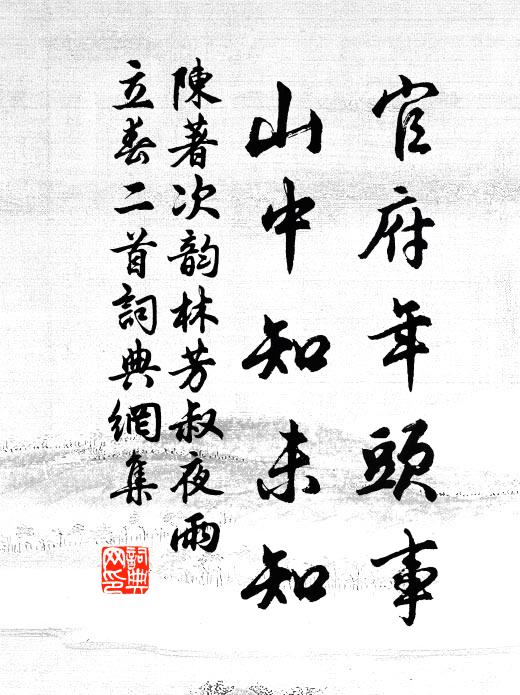 官府年頭事
山中知未知
陳著次韵林芳叔夜雨
立春二首詞典網集
詞典網印